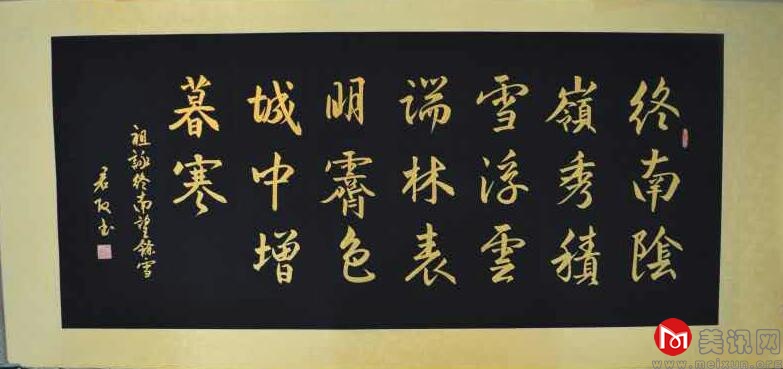 终南陰
嶺秀積
雪浮雲
端林表
明霽色
城中增
暮寒
祖詠终南望餘雪
君政书
美讯网
www.meixun.org